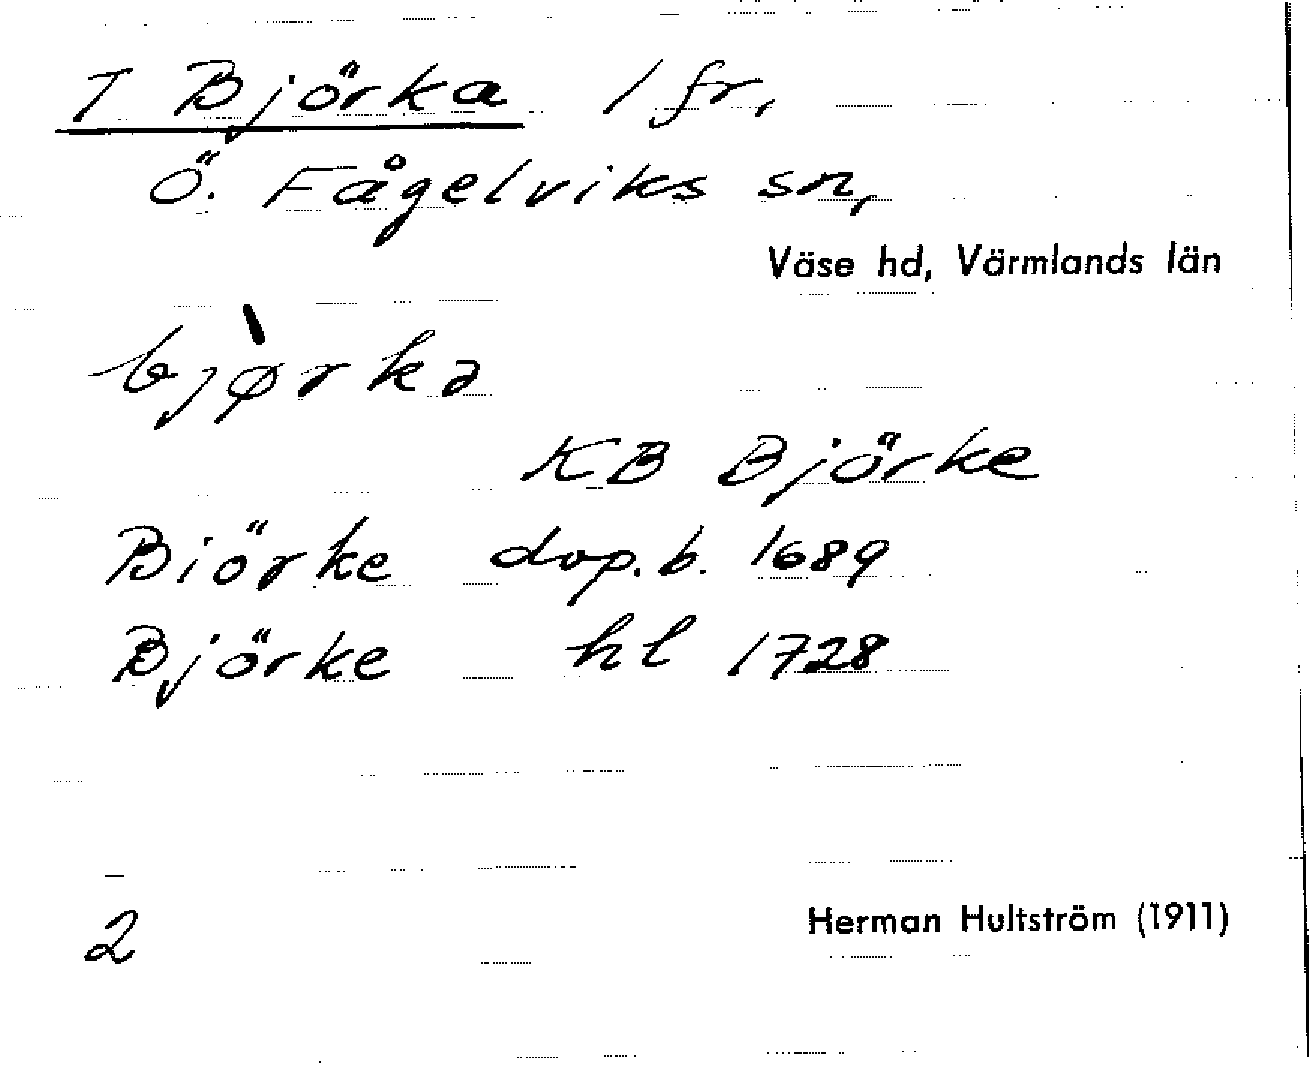 T Björka 1 fr,
Ö. Fågelviks sn,
Väse hd, Värmlands län
bjø̀rka
KB Björke
Biörke dop.b. 1689
Björke hl 1728
2
Herman Hultström (1911)